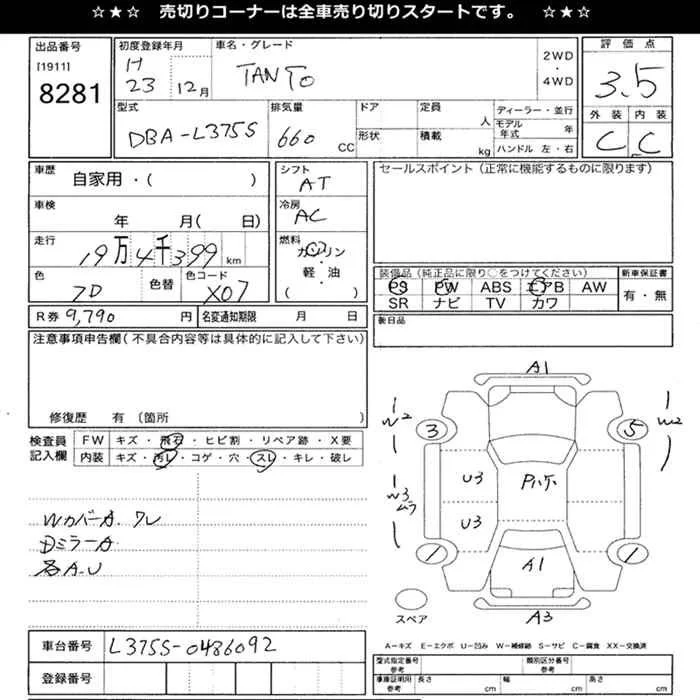 ☆★☆ 売切りコーナーは全車売り切りスタートです。 ☆★☆
出品番号
[1911]
8281
初度登録年月
H
23 12月
車名・グレード
TANTO
2WD
・
4WD
評価点
3.5
外装 内装
C C
型式
DBA-L375S
排気量
660 CC
ドア
形状
定員
人
積載
kg
ディーラー・並行
モデル年式 年
ハンドル 左・右
車歴
自家用・( )
シフト
AT
セールスポイント(正常に機能するものに限ります)
車検
年 月( 日)
冷房
AC
走行
19万4千399 km
燃料
ガソリン
・
軽・油
( )
色
色替
色コード
X07
装備品(純正品に限り○をつけてください)
PS PW ABS エアB AW
SR ナビ TV カワ
新車保証書
有・無
R券 9,790 円
名変通知期限 月 日
後日品
注意事項申告欄(不具合内容等は具体的に記入して下さい)
修復歴 有(箇所 )
検査員
記入欄
FW キズ・飛石・ヒビ割・リペア跡・X要
内装 キズ・汚レ・コゲ・穴・スレ・キレ・破レ
WカバーA.ワレ
DミラーA
各A.U
A1
W2
3
5
W2
U3
W3
ムラ
U3
1
1
A1
A3
スペア
車台番号 L375S-0486092
登録番号
A-キズ E-エクボ U-凹み W-補修跡 S-サビ C-腐食 XX-交換済
型式指定番号
参考
類別区分番号
参考
車庫証明用
参考
長さ cm
幅 cm
高さ cm